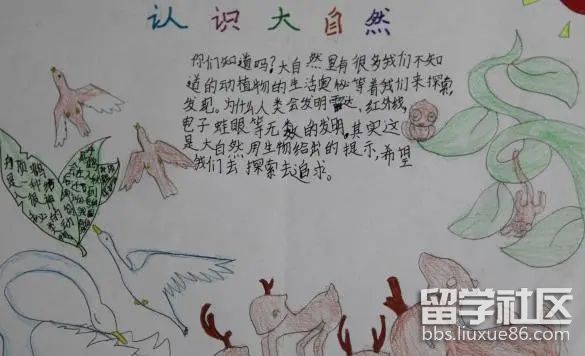 认识大自然
你们知道吗？大自然里有很多我们不知
道的动植物的生活奥秘等着我们来探索，
发现。为什么人类会发明雷达，红外线，
电子蛙眼等无数的发明，其实这
是大自然用生物给出的提示，希望
我们去探索去追求。
留学社区
bbs.liuxue86.com